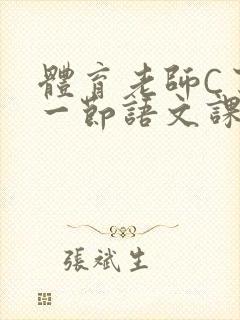 體育老師C
一節語文課
張斌生